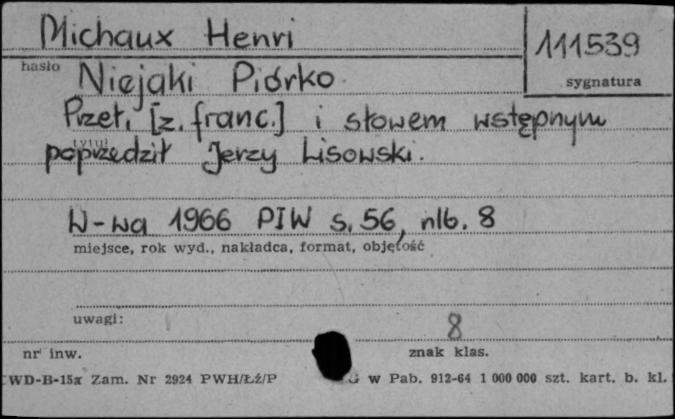 Michaux Henri
111539
hasło
Niejaki Piórko
sygnatura
Przeł. [z. franc.] i słowem wstępnym
tytuł
poprzedził Jerzy Lisowski.
W-wa 1966 PIW s. 56, nlb. 8
miejsce, rok wyd., nakładca, format, objętość
uwagi:
8
nr inw.
znak klas.
WD-B-15a Zam. Nr 2924 PWH/Łź/P
G w Pab. 912-64 1 000 000 szt. kart. b. kl.